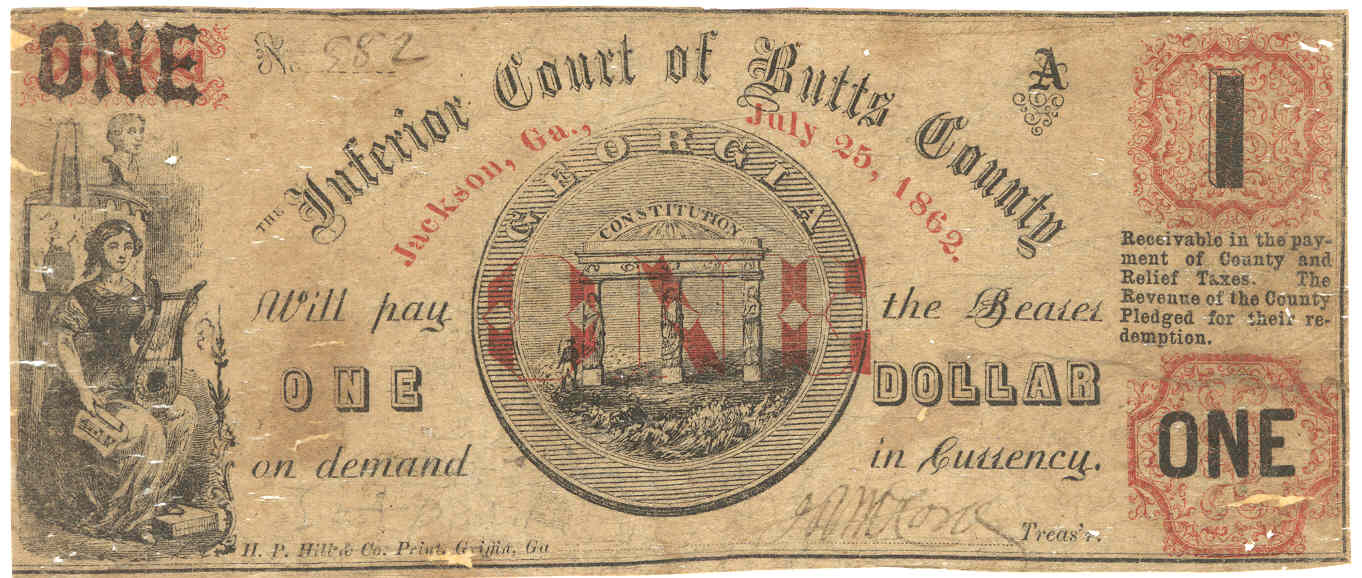 ONE
No. 582
A
1
THE Inferior Court of Butts County
Jackson, Ga., July 25, 1862.
GEORGIA
CONSTITUTION
ONE
Will pay the Bearer
ONE DOLLAR
on demand in Currency.
Receivable in the pay-
ment of County and
Relief Taxes. The
Revenue of the County
Pledged for their re-
demption.
ONE
Treas'r.
H. P. Hill & Co. Print. Griffin, Ga